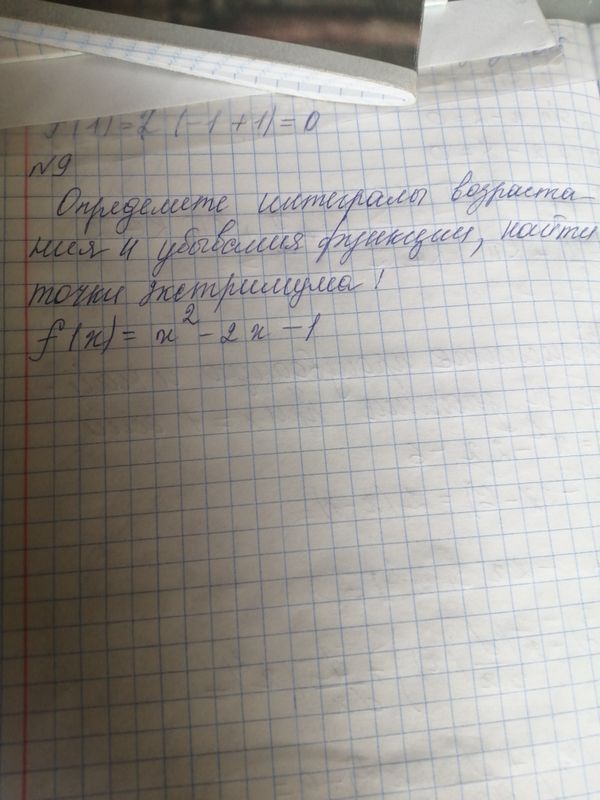 (1)=2(-1+1)=0
№9
Определите интегралы возраста-
ния и убывания функции, найти
точки экстримума!
f(x)= x²-2x-1